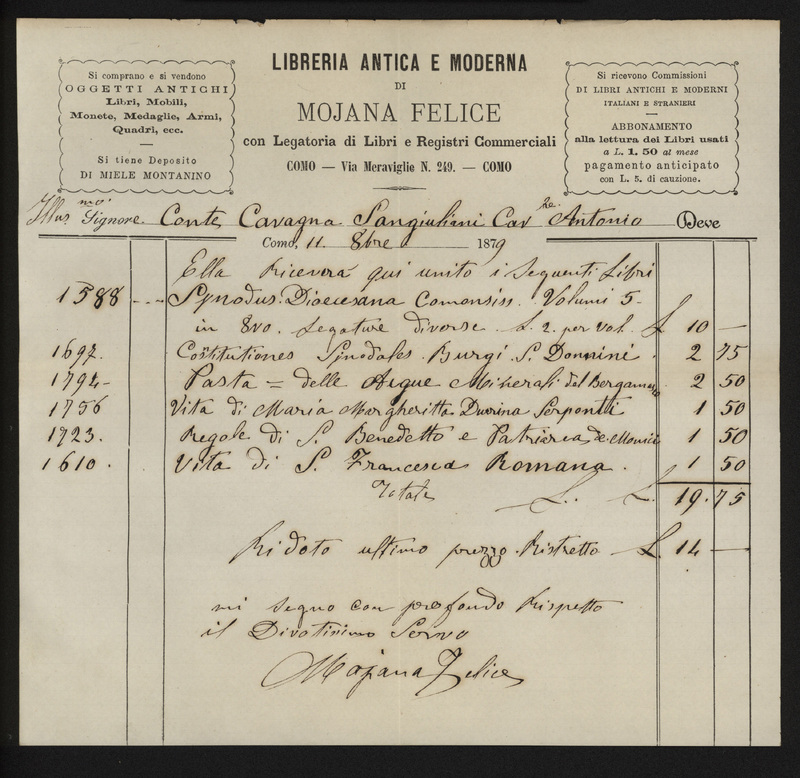 LIBRERIA ANTICA E MODERNA
DI
MOJANA FELICE
con Legatoria di Libri e Registri Commerciali
COMO — Via Meraviglie N. 249. — COMO
Si comprano e si vendono
OGGETTI ANTICHI
Libri, Mobili,
Monete, Medaglie, Armi,
Quadri, ecc.
Si tiene Deposito
DI MIELE MONTANINO
Si ricevono Commissioni
DI LIBRI ANTICHI E MODERNI
ITALIANI E STRANIERI
ABBONAMENTO
alla lettura dei Libri usati
a L. 1. 50 al mese
pagamento anticipato
con L. 5. di cauzione.
Illus.mo Signore Conte Cavagna Sangiuliani Cav.re Antonio Deve
Como, 11. 8bre 1879
Ella Riceverà qui unito i Seguenti Libri
1588 - - - Synodus. Diocesana Comensiss. Volumi 5-
in 8vo. Legature diverse L. 2. per vol. L 10 —
1697. Costitutiones Synodales Burgi S. Donnini. 2 75
1794- Pasta = delle Acque Minerali del Bergamasco 2 50
1756 Vita di Maria Margheritta Durina Serponti 1 50
1723. Regole di S. Benedetto e Patriarca de Monici 1 50
1610. Vita di S. Francesca Romana. 1 50
Totale L. L. 19.75
Ridoto ultimo prezzo Ristretto L. 14 —
mi segno con profondo Rispetto
il Divotisimo Servo
Mojana Felice